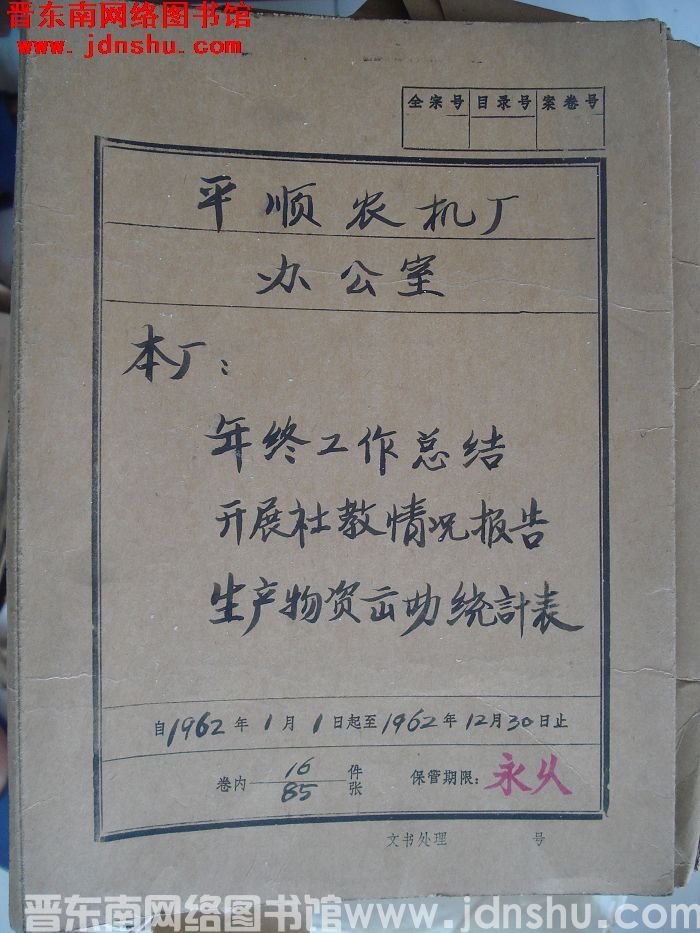 晋东南网络图书馆
www.jdnshu.com
全宗号 目录号 案卷号
平顺农机厂
办公室
本厂：
年终工作总结
开展社教情况报告
生产物资云劳统計表
自1962年1月1日起至1962年12月30日止
卷内 16 件 保管期限：永久
85 张
文书处理 号
晋东南网络图书馆www.jdnshu.com